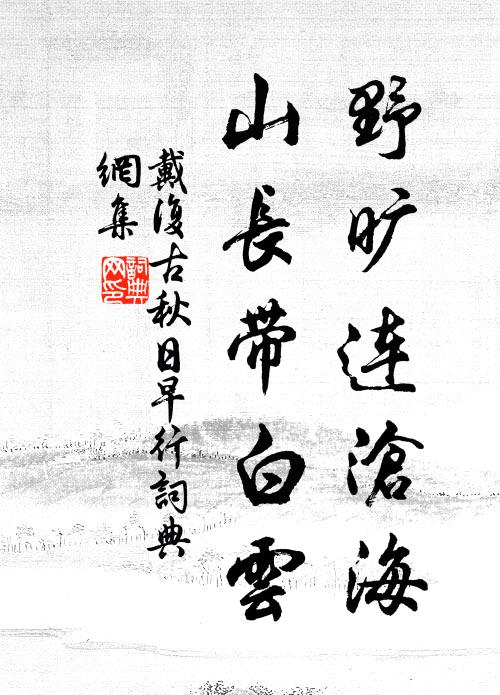 野旷連滄海
山長帶白雲
戴復古秋日早行詞典
網集
詞典網印